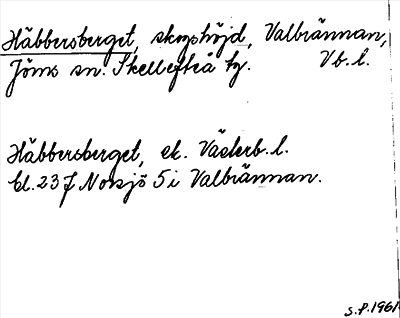 Häbbersberget, skogshöjd, Valbrännan,
Jörns sn. Skellefteå tg. Vb. l.
Häbbersberget, ek. Västerb. l.
bl. 23 J Norsjö 5 i Valbrännan.
S.P. 1961